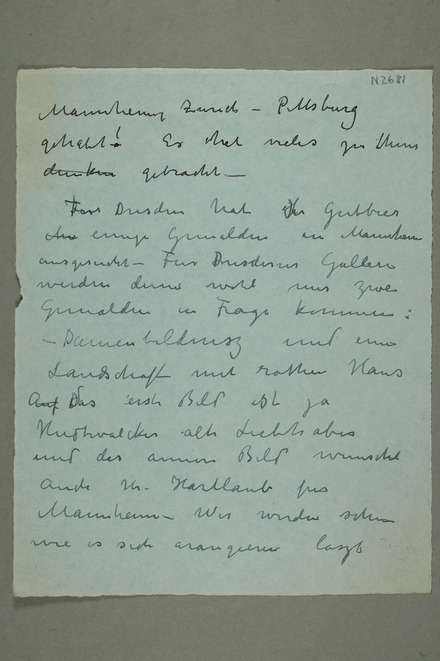 N2681
Mannheim, Zürich – Pittsburg
gehabt! Es hat vieles zu thun
denken gebracht –
Für Dresden hat Gutbier
einige Gemälden in Mannheim
ausgesucht – Für Dresdener Gallerie
werden denn wohl nur zwei
Gemälden in Frage kommen:
– Damenbildnisz und eine
Landschaft mit rothen Haus
Auf Das erste Bild ist ja
Hudtwalcker alte Liebhaber
und das annere Bild wünscht
auch Hr. Hartlaub für
Mannheim – Wir werden sehen
wie es sich arangieren laszt